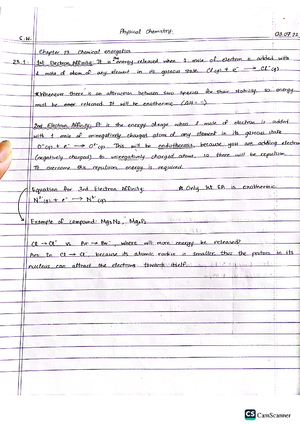 Physical Chemistry
C.H.
03.07.22
Chapter 23 Chemical energetics
23.1 1st Electron Affinity: It is energy released when 1 mole of electron is added with
1 mole of atom of any element in its gaseous state. Cl(g) + e⁻ → Cl⁻(g)
*Whenever there is an attraction between two species for their stability, so energy
must be released. It will be exothermic (ΔH = -)
2nd Electron Affinity: It is the energy change when 1 mole of electron is added
with 1 mole of uninegatively charged atom of any element in its gaseous state
O⁻(g) + e⁻ → O²⁻(g). This will be endothermic, because you are adding electron
(negatively charged) to uninegatively charged atom, so there will be repulsion.
To overcome this repulsion, energy is required.
Equation for 3rd Electron Affinity: * Only 1st EA is exothermic
N²⁻(g) + e⁻ → N³⁻(g)
Example of compound: Mg₃N₂, Mg₃P₂
Cl → Cl⁻ vs Br → Br⁻, where will more energy be released?
Ans: In Cl → Cl⁻, because its atomic radius is smaller, thus the protons in its
nucleus can attract the electrons towards itself.
CS CamScanner